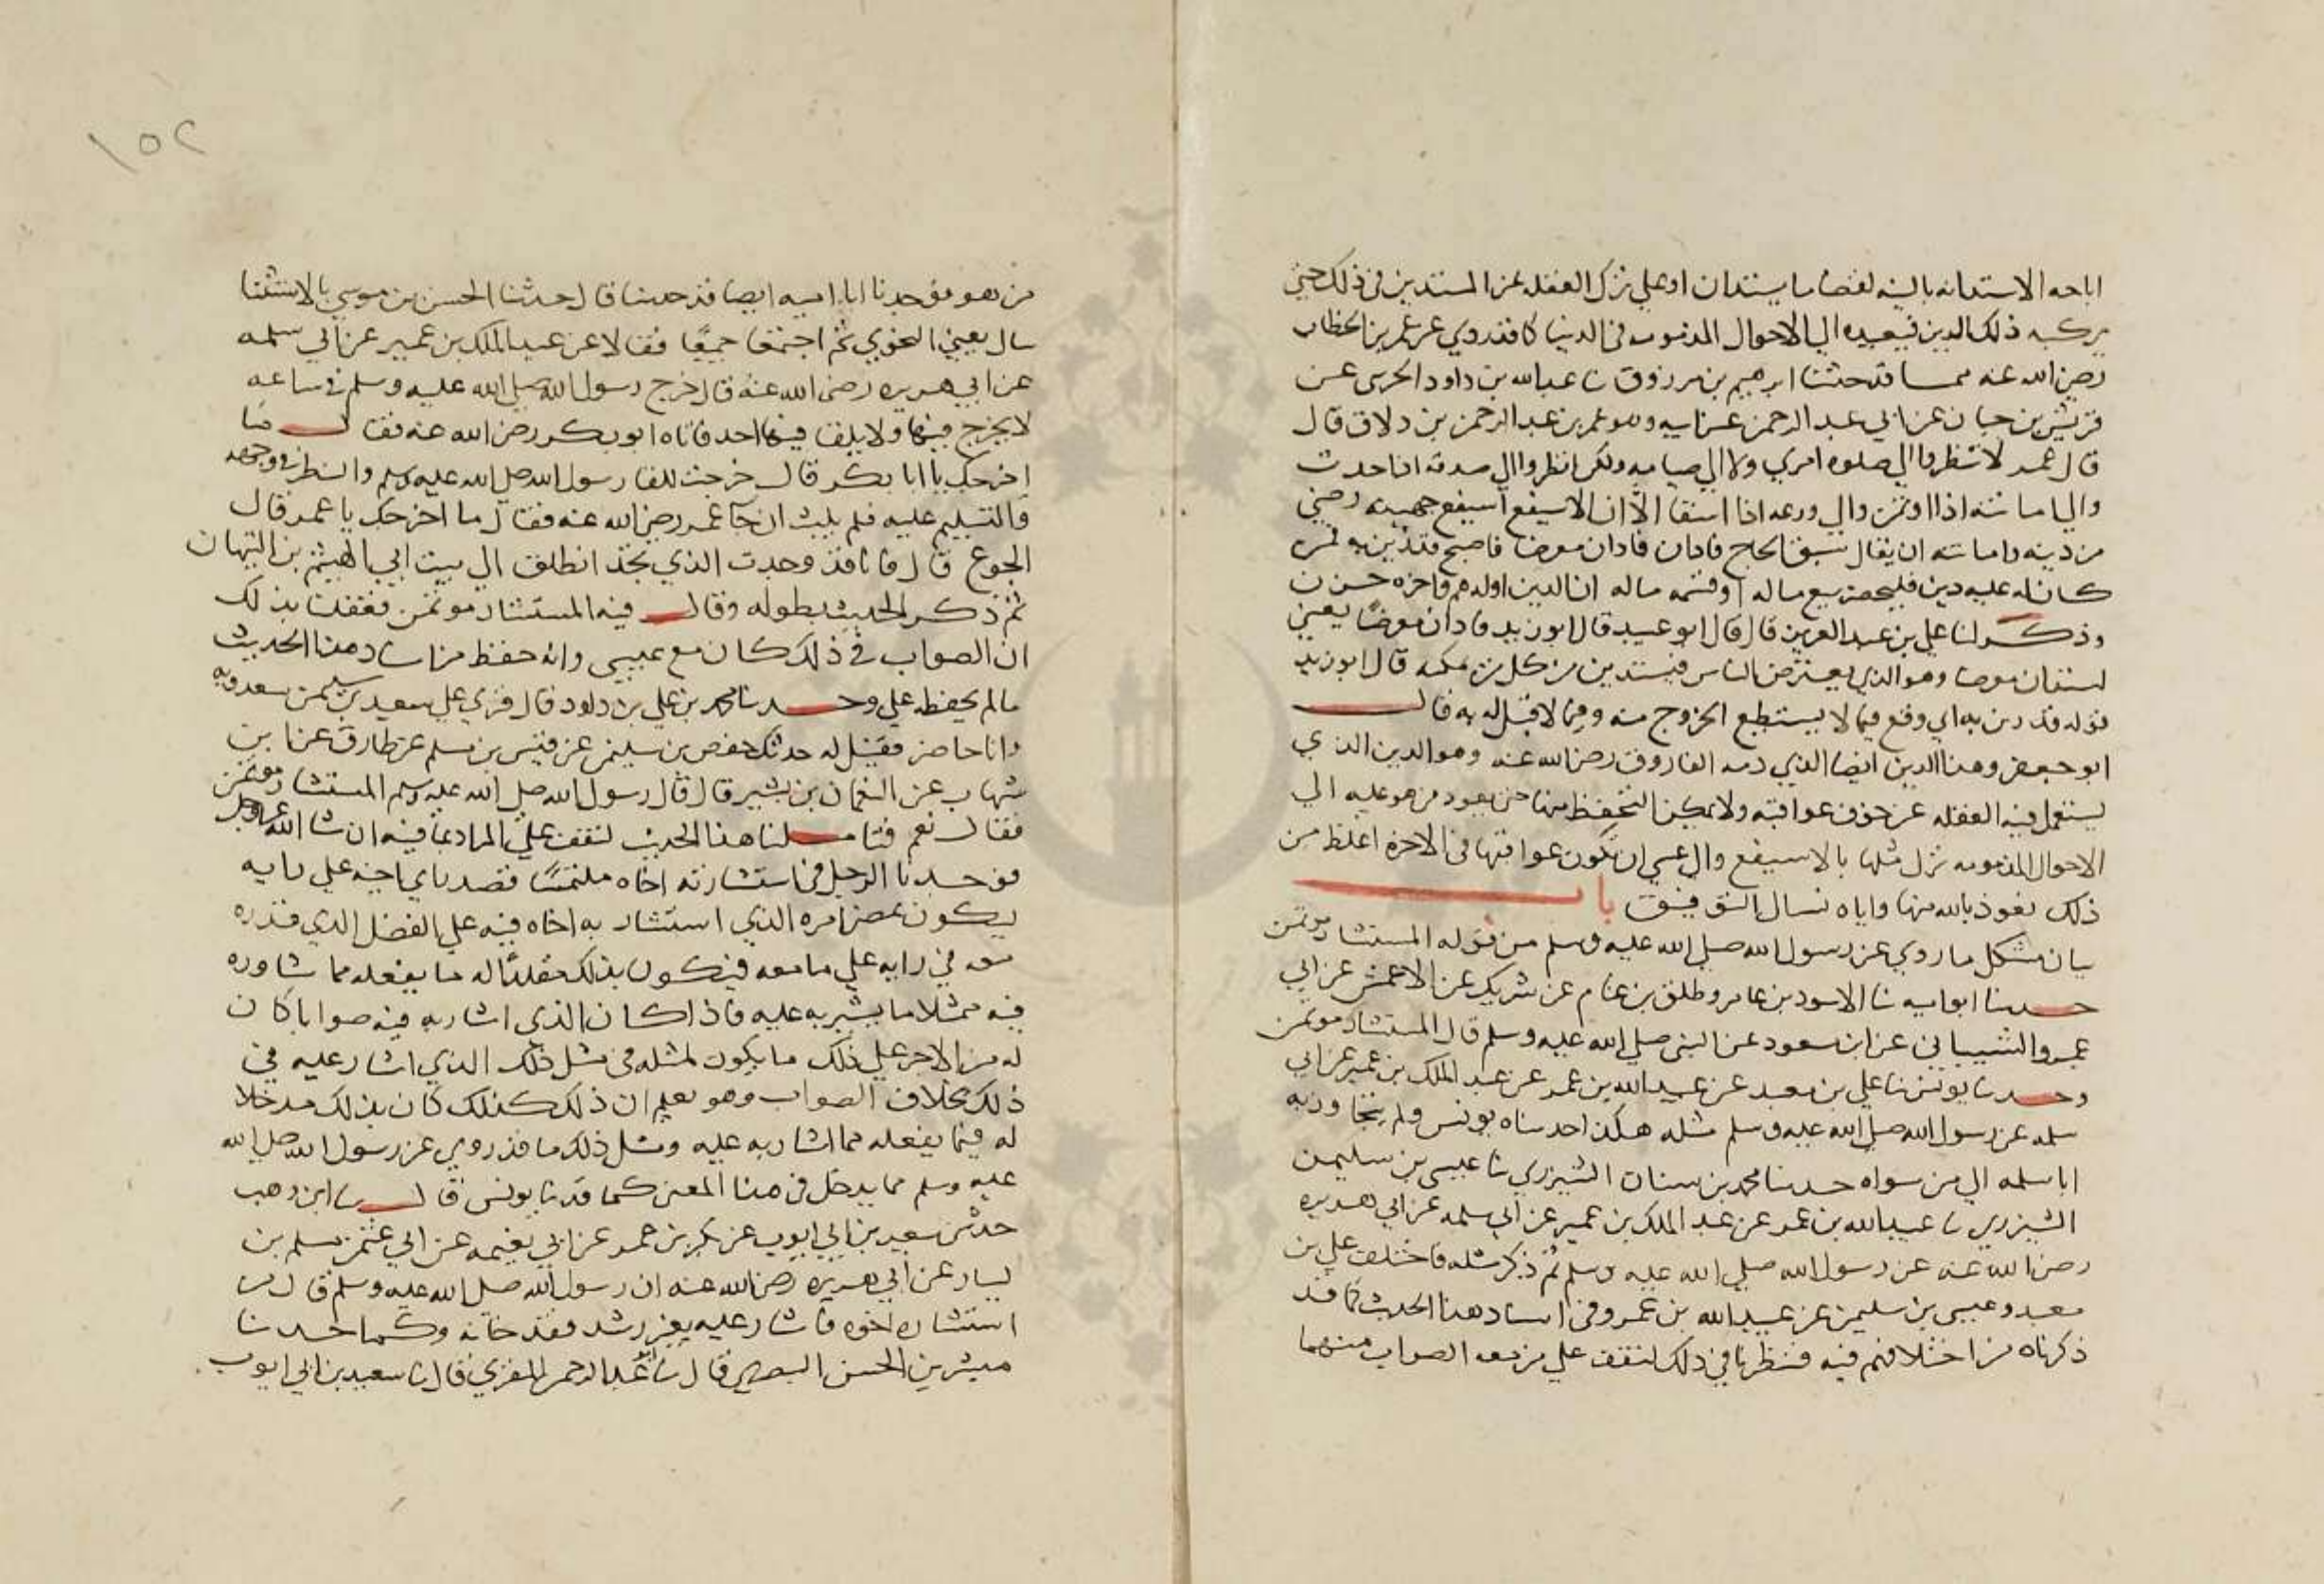 اباحه الاستدانه بالنيه لقضا ما يستدان او علي ترك الغفله عن المستدين في ذلك حتي
يركبه ذلك الدين فيعيده الي الاحوال المذمومه في الدنيا كما قد روي عن عمر بن الخطاب
رضي الله عنه مما قد حدثنا ابرهيم بن مرزوق نا عبدالله بن داود الخريبي عن
قريش بن حيان عن ابي عبد الرحمن عن ابيه وهو عمر بن عبد الرحمن بن دلاف قال
قال عمر لا تنظروا الي صلوه امري ولا الي صيامه ولكن انظروا الي صدقه اذا حدث
والي امانته اذا اوتمن والي ورعه اذا استغنا الا ان الاسيفع اسيفع جهينه رضي
من دينه وامانته ان يقال سبق الحاج فادان فادان معرضا فاصبح قد دين به فمن
كان له عليه دين فليحضر بيع ماله او قسمه ماله ان الدين اوله هم واخره حزن
وذكر لنا علي بن عبد العزيز قال قال ابو عبيد قال ابو زيد فادان معرضا يعني
استدان معرضا وهو الذي يعترض الناس فيستدين من كل من امكنه قال ابو زيد
قوله قد دين به اي وقع فيما لا يستطيع الخروج منه وفيما لا قبل له به قال
ابو جعفر وهذا الدين ايضا الذي ذمه الفاروق رضي الله عنه وهو الدين الذي
يستعمل فيه الغفله عن خوف عواقبه ولا يمكن التحفظ منها حتي يعود من هو عليه الي
الاحوال المذمومه نزل مثلها بالاسيفع والي عسي ان تكون عواقبها في الاخره اغلظ من
ذلك نعوذ بالله منها واياه نسال التوفيق باب
بيان مشكل ما روي عن رسول الله صلي الله عليه وسلم من قوله المستشار موتمن
حدثنا ابو اميه نا الاسود بن عامر وطلق بن غنام عن شريك عن الاعمش عن ابي
عمرو الشيباني عن ابن مسعود عن النبي صلي الله عليه وسلم قال المستشار موتمن
وحدثنا يونس نا علي بن معبد عن عبيد الله بن عمرو عن عبد الملك بن عمير عن ابي
سلمه عن رسول الله صلي الله عليه وسلم مثله هكذا حدثناه يونس ولم يتجاوز به
ابا سلمه الي من سواه حدثنا محمد بن سنان الشيزري نا عيسي بن سليمن
الشيزري نا عبيد الله بن عمرو عن عبد الملك بن عمير عن ابي سلمه عن ابي هريره
رضي الله عنه عن رسول الله صلي الله عليه وسلم ثم ذكر مثله فاختلف علي بن
معبد وعيسي بن سليمن عن عبيد الله بن عمرو في اسناد هذا الحديث كما قد
ذكرناه من اختلافهم فيه فنظرنا في ذلك لنقف علي من معه الصواب منهما
١٥٢
من هو فوجدنا ابا اميه ايضا قد حدثنا قال حدثنا الحسن بن موسي الاشيب نا
سال يعني النحوي ثم اجتمعا جميعا فقالا عن عبد الملك بن عمير عن ابي سلمه
عن ابي هريره رضي الله عنه قال خرج رسول الله صلي الله عليه وسلم في ساعه
لا يخرج فيها ولا يلقاه فيها احد فاتاه ابو بكر رضي الله عنه فقال ما
اخرجك يا ابا بكر قال خرجت للقا رسول الله صلي الله عليه وسلم والنظر في وجهه
والتسليم عليه فلم يلبث ان جا عمر رضي الله عنه فقال ما اخرجك يا عمر قال
الجوع قال فانا قد وجدت الذي تجد انطلق الي بيت ابي الهيثم بن التيهان
ثم ذكر الحديث بطوله وقال فيه المستشار موتمن فعقلنا بذلك
ان الصواب في ذلك كان مع عيسي وانه حفظ من اسناد هذا الحديث
ما لم يحفظه علي وحدثنا محمد بن علي بن داود قال قري علي سعيد بن سليمن سعدويه
وانا حاضر فقيل له حدثك حفص بن سليمن عن قيس بن مسلم عن طارق عن ابن
شهاب عن النعمان بن بشير قال قال رسول الله صلي الله عليه وسلم المستشار موتمن
فقال نعم فتاملنا هذا الحديث لنقف علي المراد بما فيه ان شا الله عز وجل
فوجدنا الرجل في استشارته اخاه ملتمسا فضل راي اخيه علي رايه
يكون يمضي امره الذي استشار به اخاه فيه علي الفضل الذي قدره
معه في رايه علي ما معه فيكون بذلك مقلدا له ما يفعله مما شاوره
فيه ممتثلا ما يشير به عليه فاذا كان الذي اشار به فيه صوابا كان
له من الاجر علي ذلك ما يكون لمثله في مثل ذلك الذي اشار عليه في
ذلك بخلاف الصواب وهو يعلم ان ذلك كذلك كان بذلك مدخلا
له فيما يفعله مما اشار به عليه ومثل ذلك ما قد روي عن رسول الله صلي الله
عليه وسلم مما يدخل في هذا المعني كما قد نا يونس قال نا ابن وهب
حدثني سعيد بن ابي ايوب عن بكر بن عمرو عن ابي نعيمه عن ابي عثمن مسلم بن
يسار عن ابي هريره رضي الله عنه ان رسول الله صلي الله عليه وسلم قال من
استشاره اخوه فاشار عليه بغير رشد فقد خانه وكما حدثنا
مبشر بن الحسن البصري قال نا ابو عبد الرحمن المقري قال نا سعيد بن ابي ايوب